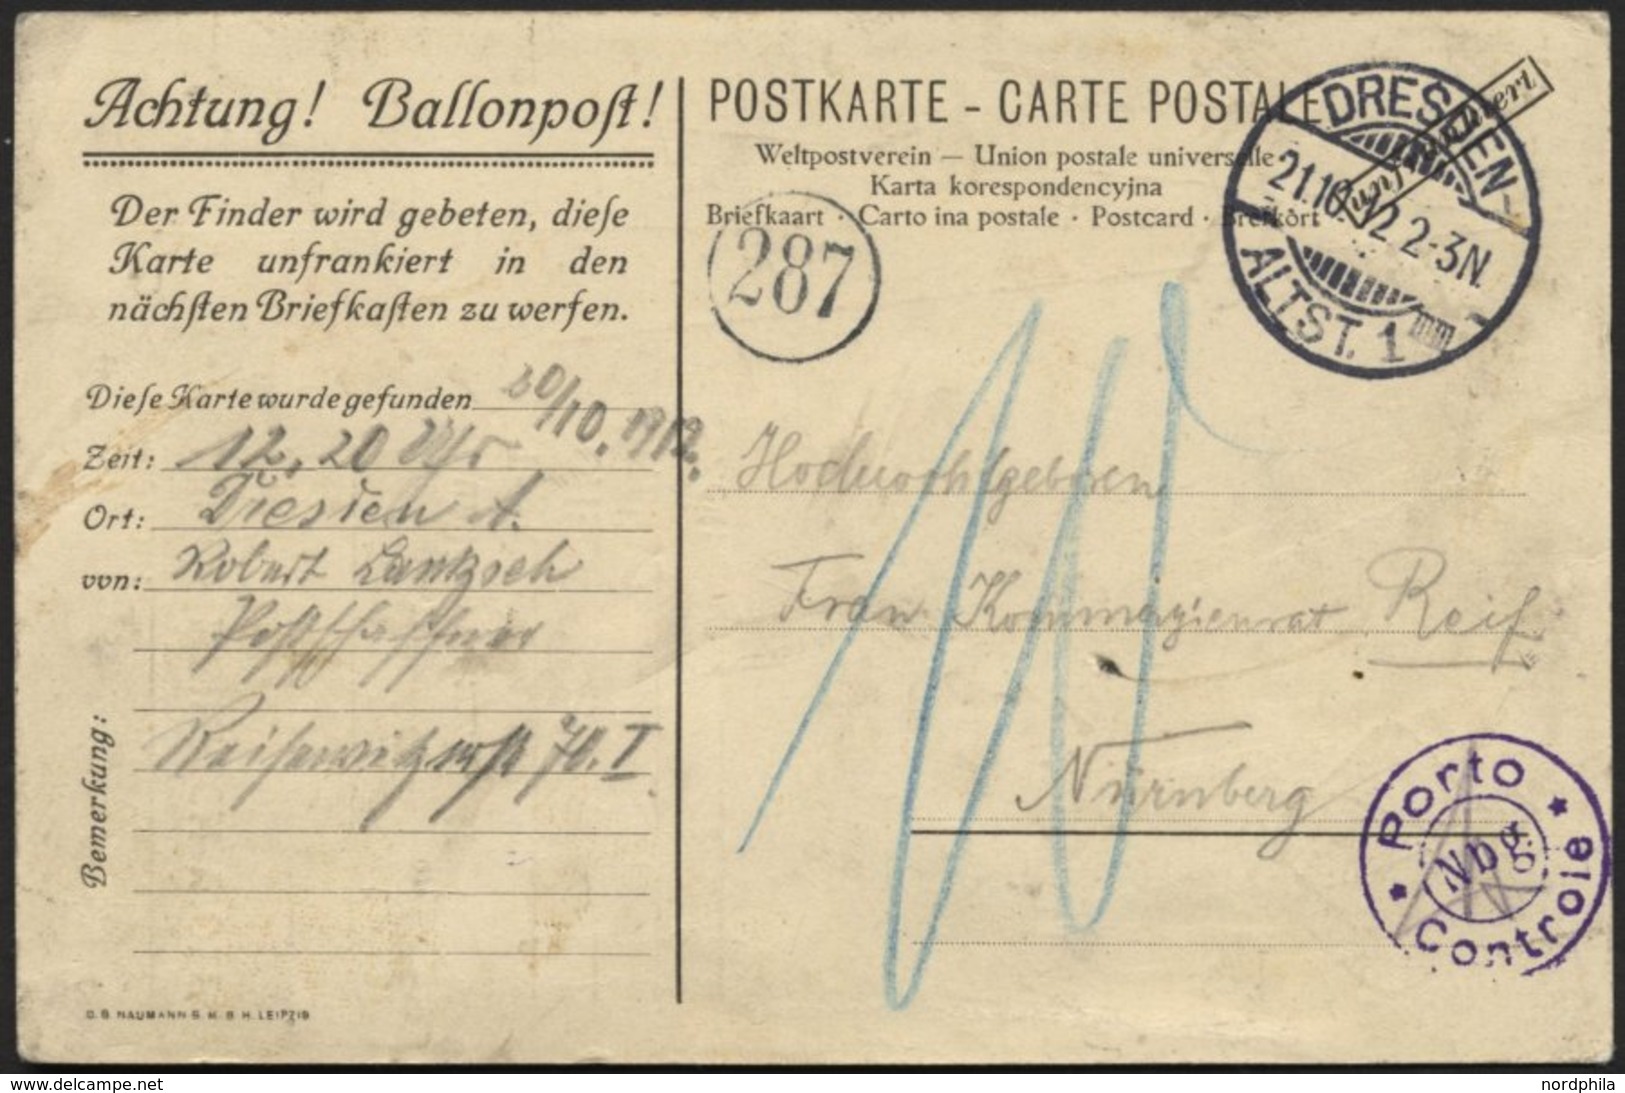 Achtung! Ballonpost!
Der Finder wird gebeten, diese
Karte unfrankiert in den
nächsten Briefkasten zu werfen.
Diese Karte wurde gefunden 20/10. 1912.
Zeit: 12,20 Uhr
Ort: Dresden A.
von: Robert
Postschaffner
Bemerkung: Reisewitzerstr 70. I
D. B. NAUMANN G. M. B. H. LEIPZIG
POSTKARTE - CARTE POSTALE
Weltpostverein — Union postale universelle
Karta korespondencyjna
Briefkaart · Carto ina postale · Postcard · Brefkort
287
DRESDEN-
21.10.12. 2-3N.
ALTST. 1
unfrankiert
10
Hochwohlgeboren
Frau Kommerzienrat Reif
Nürnberg
Porto
Nbg
Controle
delcampe.net
nordphila